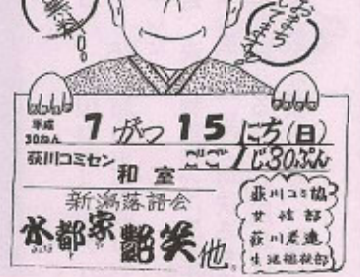 おまちしてます。
平成30ねん 7がつ15にち(日)
荻川コミセン ごご1じ30ぷん
和室
新潟落語会
水都家艶笑他。
荻川コミ協
女性部
荻川農連
生活組織部